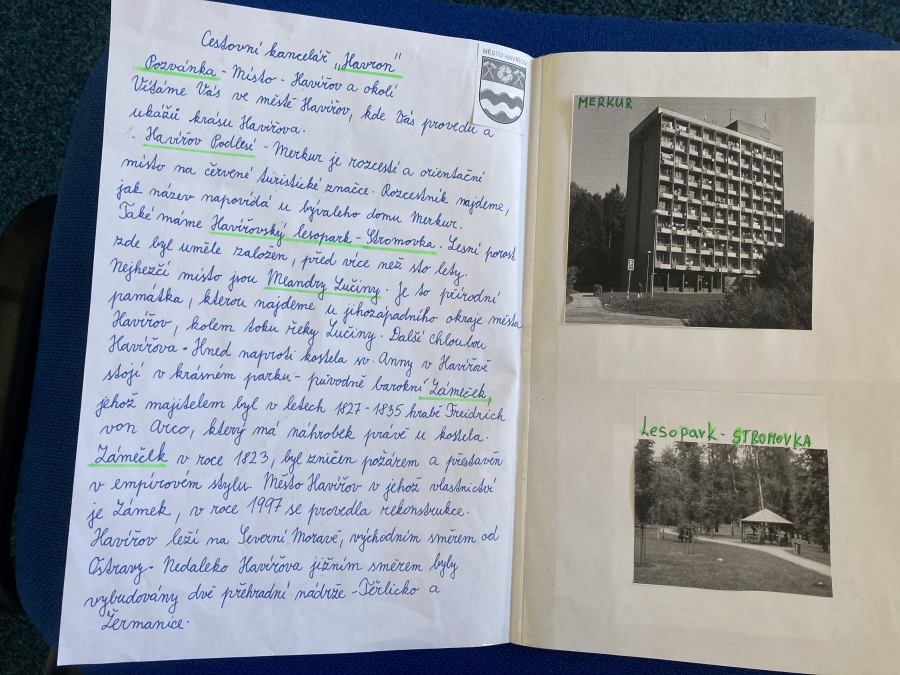 Cestovní kancelář „Havron"
Pozvánka - Místo - Havířov a okolí
Vítáme Vás ve městě Havířov, kde Vás provedu a
ukážů krásu Havířova.
Havířov Podlesí - Merkur je rozcestí a orientační
místo na červené turistické značce. Rozcestník najdeme,
jak název napovídá u bývaleho domu Merkur.
Také máme Havířovský lesopark - Stromovka. Lesní porost
zde byl uměle založen, před více než sto lety.
Nejhezčí místo jsou Meandry Lučiny. Je to přírodní
památka, kterou najdeme u jihozapadního okraje města
Havířov, kolem toku řeky Lučiny. Další chloubou
Havířova - Hned naproti kostela sv. Anny v Havířově
stojí v krásném parku - původně barokní Zámeček,
jehož majitelem byl v letech 1827-1835 hrabě Freidrich
von Arco, který má náhrobek právě u kostela.
Zámečlk v roce 1823, byl zničen požárem a přestavěn
v empírovém stylu. Město Havířov v jehož vlastnictví
je Zámek, v roce 1997 se provedla rekonstrukce.
Havířov leží na Severní Moravě, východním směrem od
Ostravy - Nedaleko Havířova jižním směrem byly
vybudovány dvě přehradní nádrže - Těrlicko a
Žermanice.
MĚSTO HAVÍŘOV
MERKUR
Lesopark - STROMOVKA